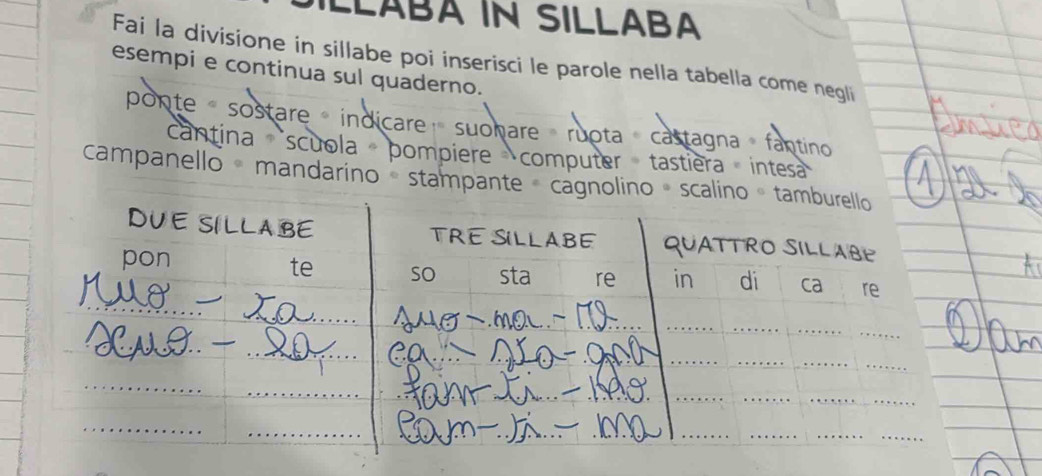 SILLABA IN SILLABA
Fai la divisione in sillabe poi inserisci le parole nella tabella come negli
esempi e continua sul quaderno.
ponte • sostare • indicare • suonare • ruota • castagna • fantino
cantina • scuola • pompiere • computer • tastiera • intesa
campanello • mandarino • stampante • cagnolino • scalino • tamburello
DUE SILLABE TRE SILLABE QUATTRO SILLABE
pon te so sta re in di ca re
ruo - ta suo - na - re
scuo - la ca - sta - gna
fan - ti - no
can - ti - na